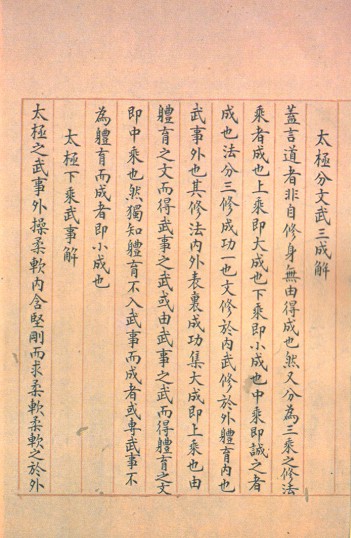 太極分文武三成解
蓋言道者非自修身無由得成也然又分為三乘之修法
乘者成也上乘即大成也下乘即小成也中乘即誠之者
成也法分三修成功一也文修於內武修於外體育內也
武事外也其修法內外表裏成功集大成即上乘也由
體育之文而得武事之武或由武事之武而得體育之文
即中乘也然獨知體育不入武事而成者或專武事不
為體育而成者即小成也
太極下乘武事解
太極之武事外操柔軟內含堅剛而求柔軟柔軟之於外